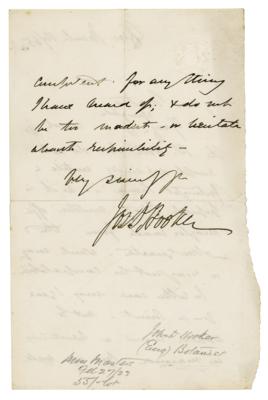 competent for any thing
I have heard of, & do not
be too modest - or hesitate
about responsibility -
Very sincerely yrs
Jos D Hooker
John D Hooker
(Eng) Botanist
Miss Masters
Feb 27/23
55/- lot